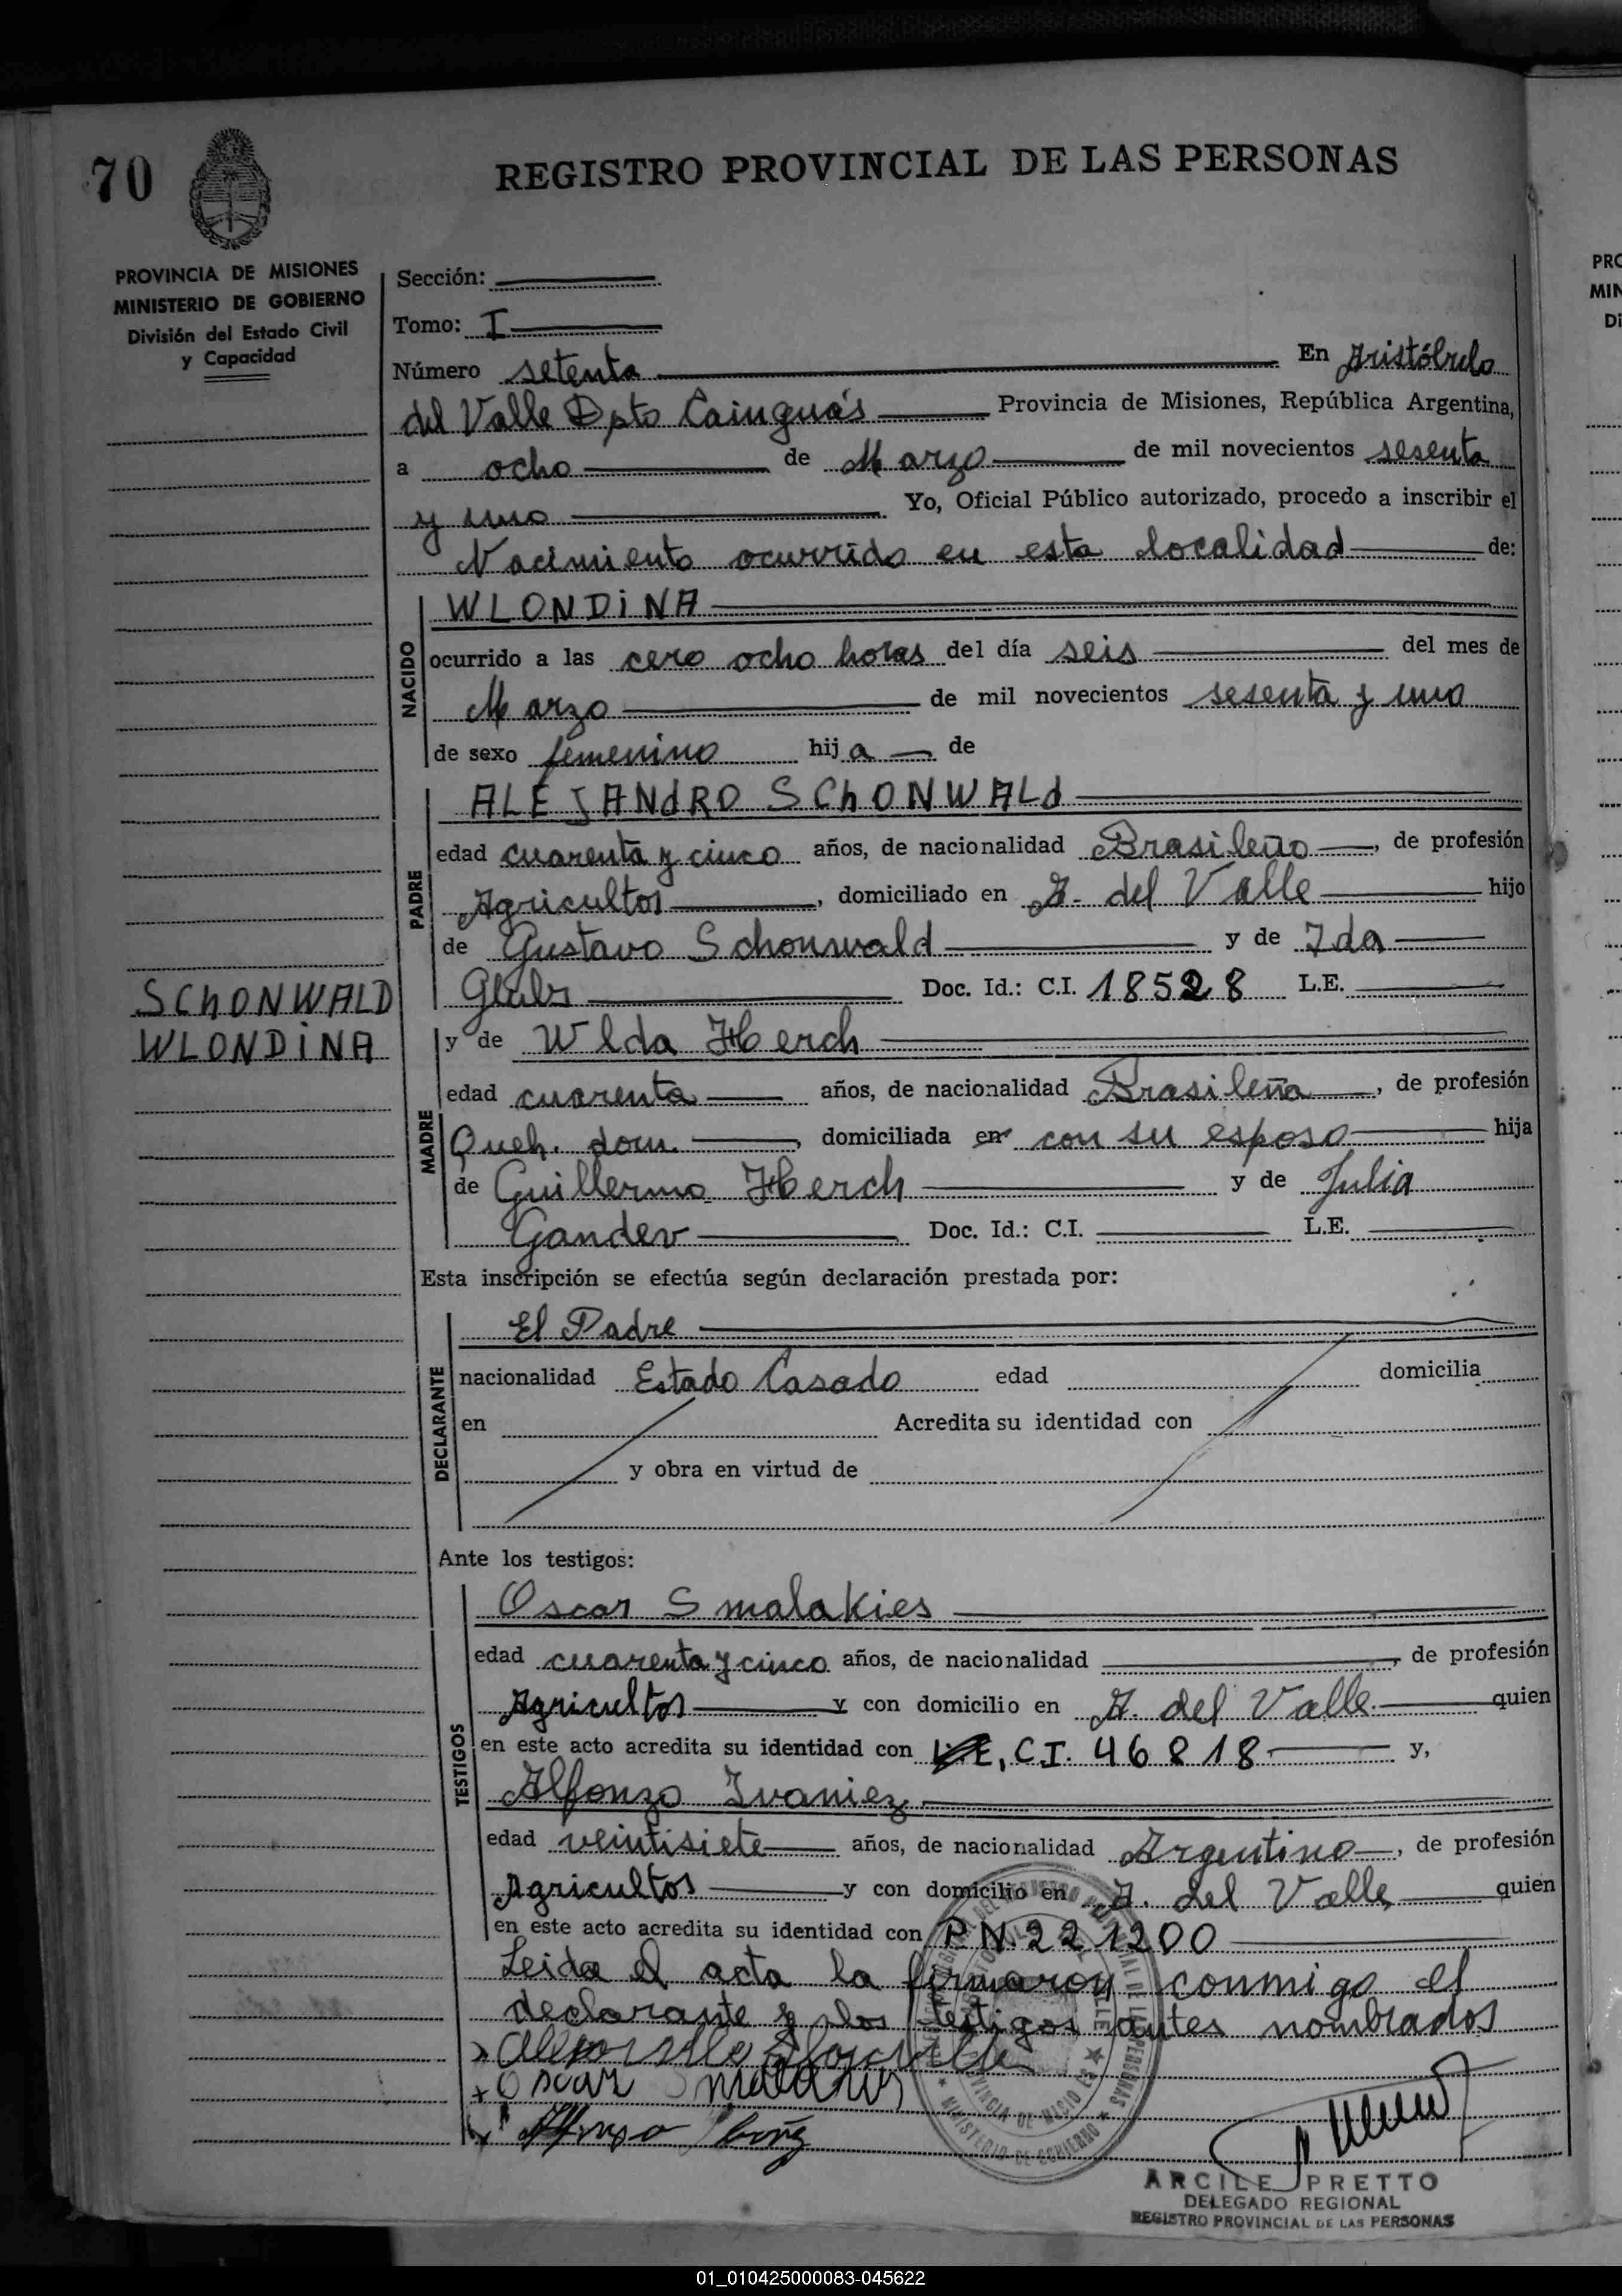 70
REGISTRO PROVINCIAL DE LAS PERSONAS
PROVINCIA DE MISIONES
MINISTERIO DE GOBIERNO
División del Estado Civil
y Capacidad
Sección:
Tomo: I
Número setenta En Aristóbulo
del Valle Dpto Cainguás Provincia de Misiones, República Argentina,
a ocho de Marzo de mil novecientos sesenta
y uno Yo, Oficial Público autorizado, procedo a inscribir el
Nacimiento ocurrido en esta localidad de:
NACIDO
WLONDiNA
ocurrido a las cero ocho horas del día seis del mes de
Marzo de mil novecientos sesenta y uno
de sexo femenino hija de
PADRE
ALEJANdRO SChONWALd
edad cuarenta y cinco años, de nacionalidad Brasileño, de profesión
Agricultor, domiciliado en A. del Valle hijo
de Gustavo Schonwald y de Ida
Doc. Id.: C.I. 18528 L.E.
SChONWALD
WLONDiNA
MADRE
y de Wlda Herch
edad cuarenta años, de nacionalidad Brasileña, de profesión
Queh. dom., domiciliada en con su esposo hija
de Guillermo Herch y de Julia
Gander Doc. Id.: C.I. L.E.
Esta inscripción se efectúa según declaración prestada por:
DECLARANTE
El Padre
nacionalidad Estado Casado edad domicilia
en Acredita su identidad con
y obra en virtud de
Ante los testigos:
TESTIGOS
Oscar Smalakies
edad cuarenta y cinco años, de nacionalidad, de profesión
Agricultor y con domicilio en A. del Valle quien
en este acto acredita su identidad con L.E, C.I. 46818 y,
Alfonzo Ivaniez
edad veintisiete años, de nacionalidad Argentino, de profesión
Agricultor y con domicilio en A. del Valle quien
en este acto acredita su identidad con P.N. 221200
Leida el acta la firmaron conmigo el
declarante y los testigos antes nombrados
Oscar
ARCILE PRETTO
DELEGADO REGIONAL
REGISTRO PROVINCIAL DE LAS PERSONAS
PRO
MIN
Di
01_010425000083-045622